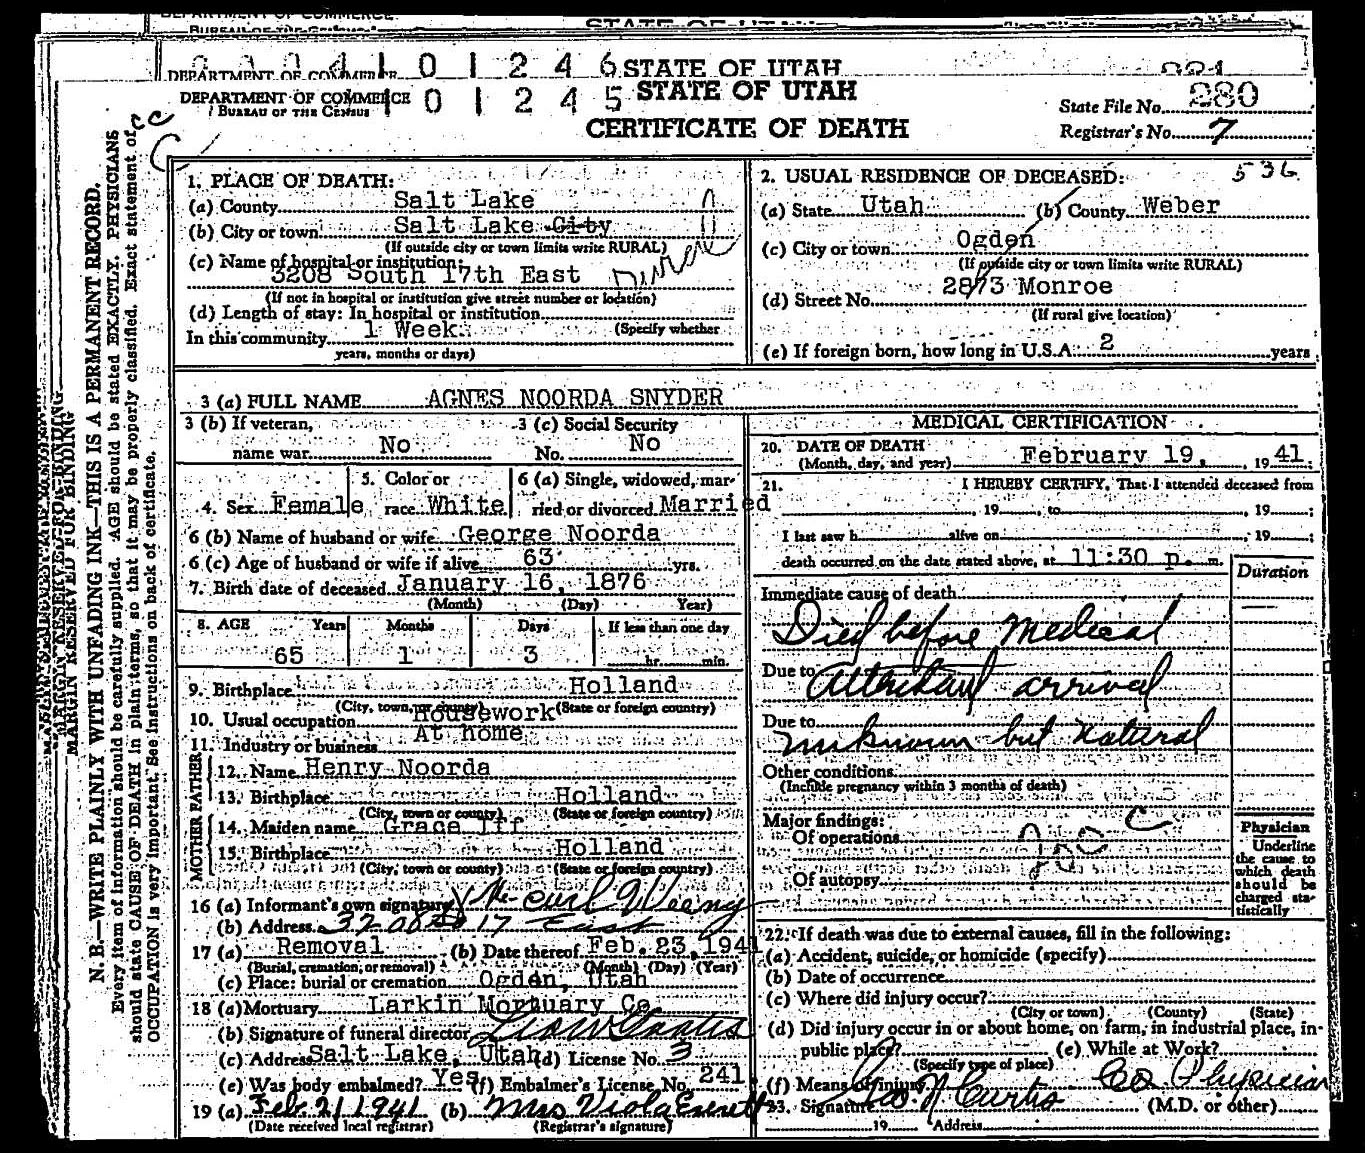 DEPARTMENT OF COMMERCE
BUREAU OF THE CENSUS
STATE OF UTAH
0 0 0 4 1 0 1 2 4 6 STATE OF UTAH
DEPARTMENT OF COMMERCE
DEPARTMENT OF COMMERCE 1 0 1 2 4 5 STATE OF UTAH
BUREAU OF THE CENSUS
State File No. 280
CERTIFICATE OF DEATH
Registrar's No. 7
MARGIN RESERVED FOR BINDING
N. B.—WRITE PLAINLY WITH UNFADING INK—THIS IS A PERMANENT RECORD.
Every item of information should be carefully supplied. AGE should be stated EXACTLY. PHYSICIANS
should state CAUSE OF DEATH in plain terms, so that it may be properly classified. Exact statement of
OCCUPATION is very important. See instructions on back of certificate.
1. PLACE OF DEATH:
(a) County Salt Lake
(b) City or town Salt Lake City
(If outside city or town limits write RURAL)
(c) Name of hospital or institution:
3208 South 17th East
(If not in hospital or institution give street number or location)
(d) Length of stay: In hospital or institution
(Specify whether
In this community 1 Week
years, months or days)
2. USUAL RESIDENCE OF DECEASED: 536
(a) State Utah (b) County Weber
(c) City or town Ogden
(If outside city or town limits write RURAL)
(d) Street No. 2873 Monroe
(If rural give location)
(e) If foreign born, how long in U.S.A. 2 years
3 (a) FULL NAME AGNES NOORDA SNYDER
3 (b) If veteran, name war No
3 (c) Social Security No. No
4. Sex Female
5. Color or race White
6 (a) Single, widowed, married or divorced Married
6 (b) Name of husband or wife George Noorda
6 (c) Age of husband or wife if alive 63 yrs.
7. Birth date of deceased January 16, 1876
(Month) (Day) Year)
8. AGE Years Months Days If less than one day
65 1 3 hr. min.
9. Birthplace Holland
(City, town, or county) (State or foreign country)
10. Usual occupation Housework
11. Industry or business At home
FATHER
12. Name Henry Noorda
13. Birthplace Holland
(City, town or county) (State or foreign country)
MOTHER
14. Maiden name Grace Iff
15. Birthplace Holland
(City, town or county) (State or foreign country)
16 (a) Informant's own signature
(b) Address 3208 So 17 East
17 (a) Removal (b) Date thereof Feb. 23, 1941
(Burial, cremation, or removal) (Month) (Day) (Year)
(c) Place: burial or cremation Ogden, Utah
18 (a) Mortuary Larkin Mortuary Co
(b) Signature of funeral director
(c) Address Salt Lake, Utah (d) License No. 3
(e) Was body embalmed? Yes (f) Embalmer's License No. 241
19 (a) Feb. 21 1941 (b) Mrs Viola Everett
(Date received local registrar) (Registrar's signature)
MEDICAL CERTIFICATION
20. DATE OF DEATH
(Month, day, and year) February 19, 1941
21. I HEREBY CERTIFY, That I attended deceased from
, 19 , to , 19 ;
I last saw h alive on , 19 ;
death occurred on the date stated above, at 11:30 p. m.
Duration
Immediate cause of death
Died before Medical
Due to Attendant arrival
Due to
unknown but Natural
Other conditions
(Include pregnancy within 3 months of death)
Major findings:
Of operations
200 C
Of autopsy
Physician
Underline
the cause to
which death
should be
charged sta-
tistically
22. If death was due to external causes, fill in the following:
(a) Accident, suicide, or homicide (specify)
(b) Date of occurrence
(c) Where did injury occur?
(City or town) (County) (State)
(d) Did injury occur in or about home, on farm, in industrial place, in-
public place? (e) While at Work?
(Specify type of place)
(f) Means of injury Co Physician
23. Signature Geo. N Curtis (M.D. or other)
19 Address